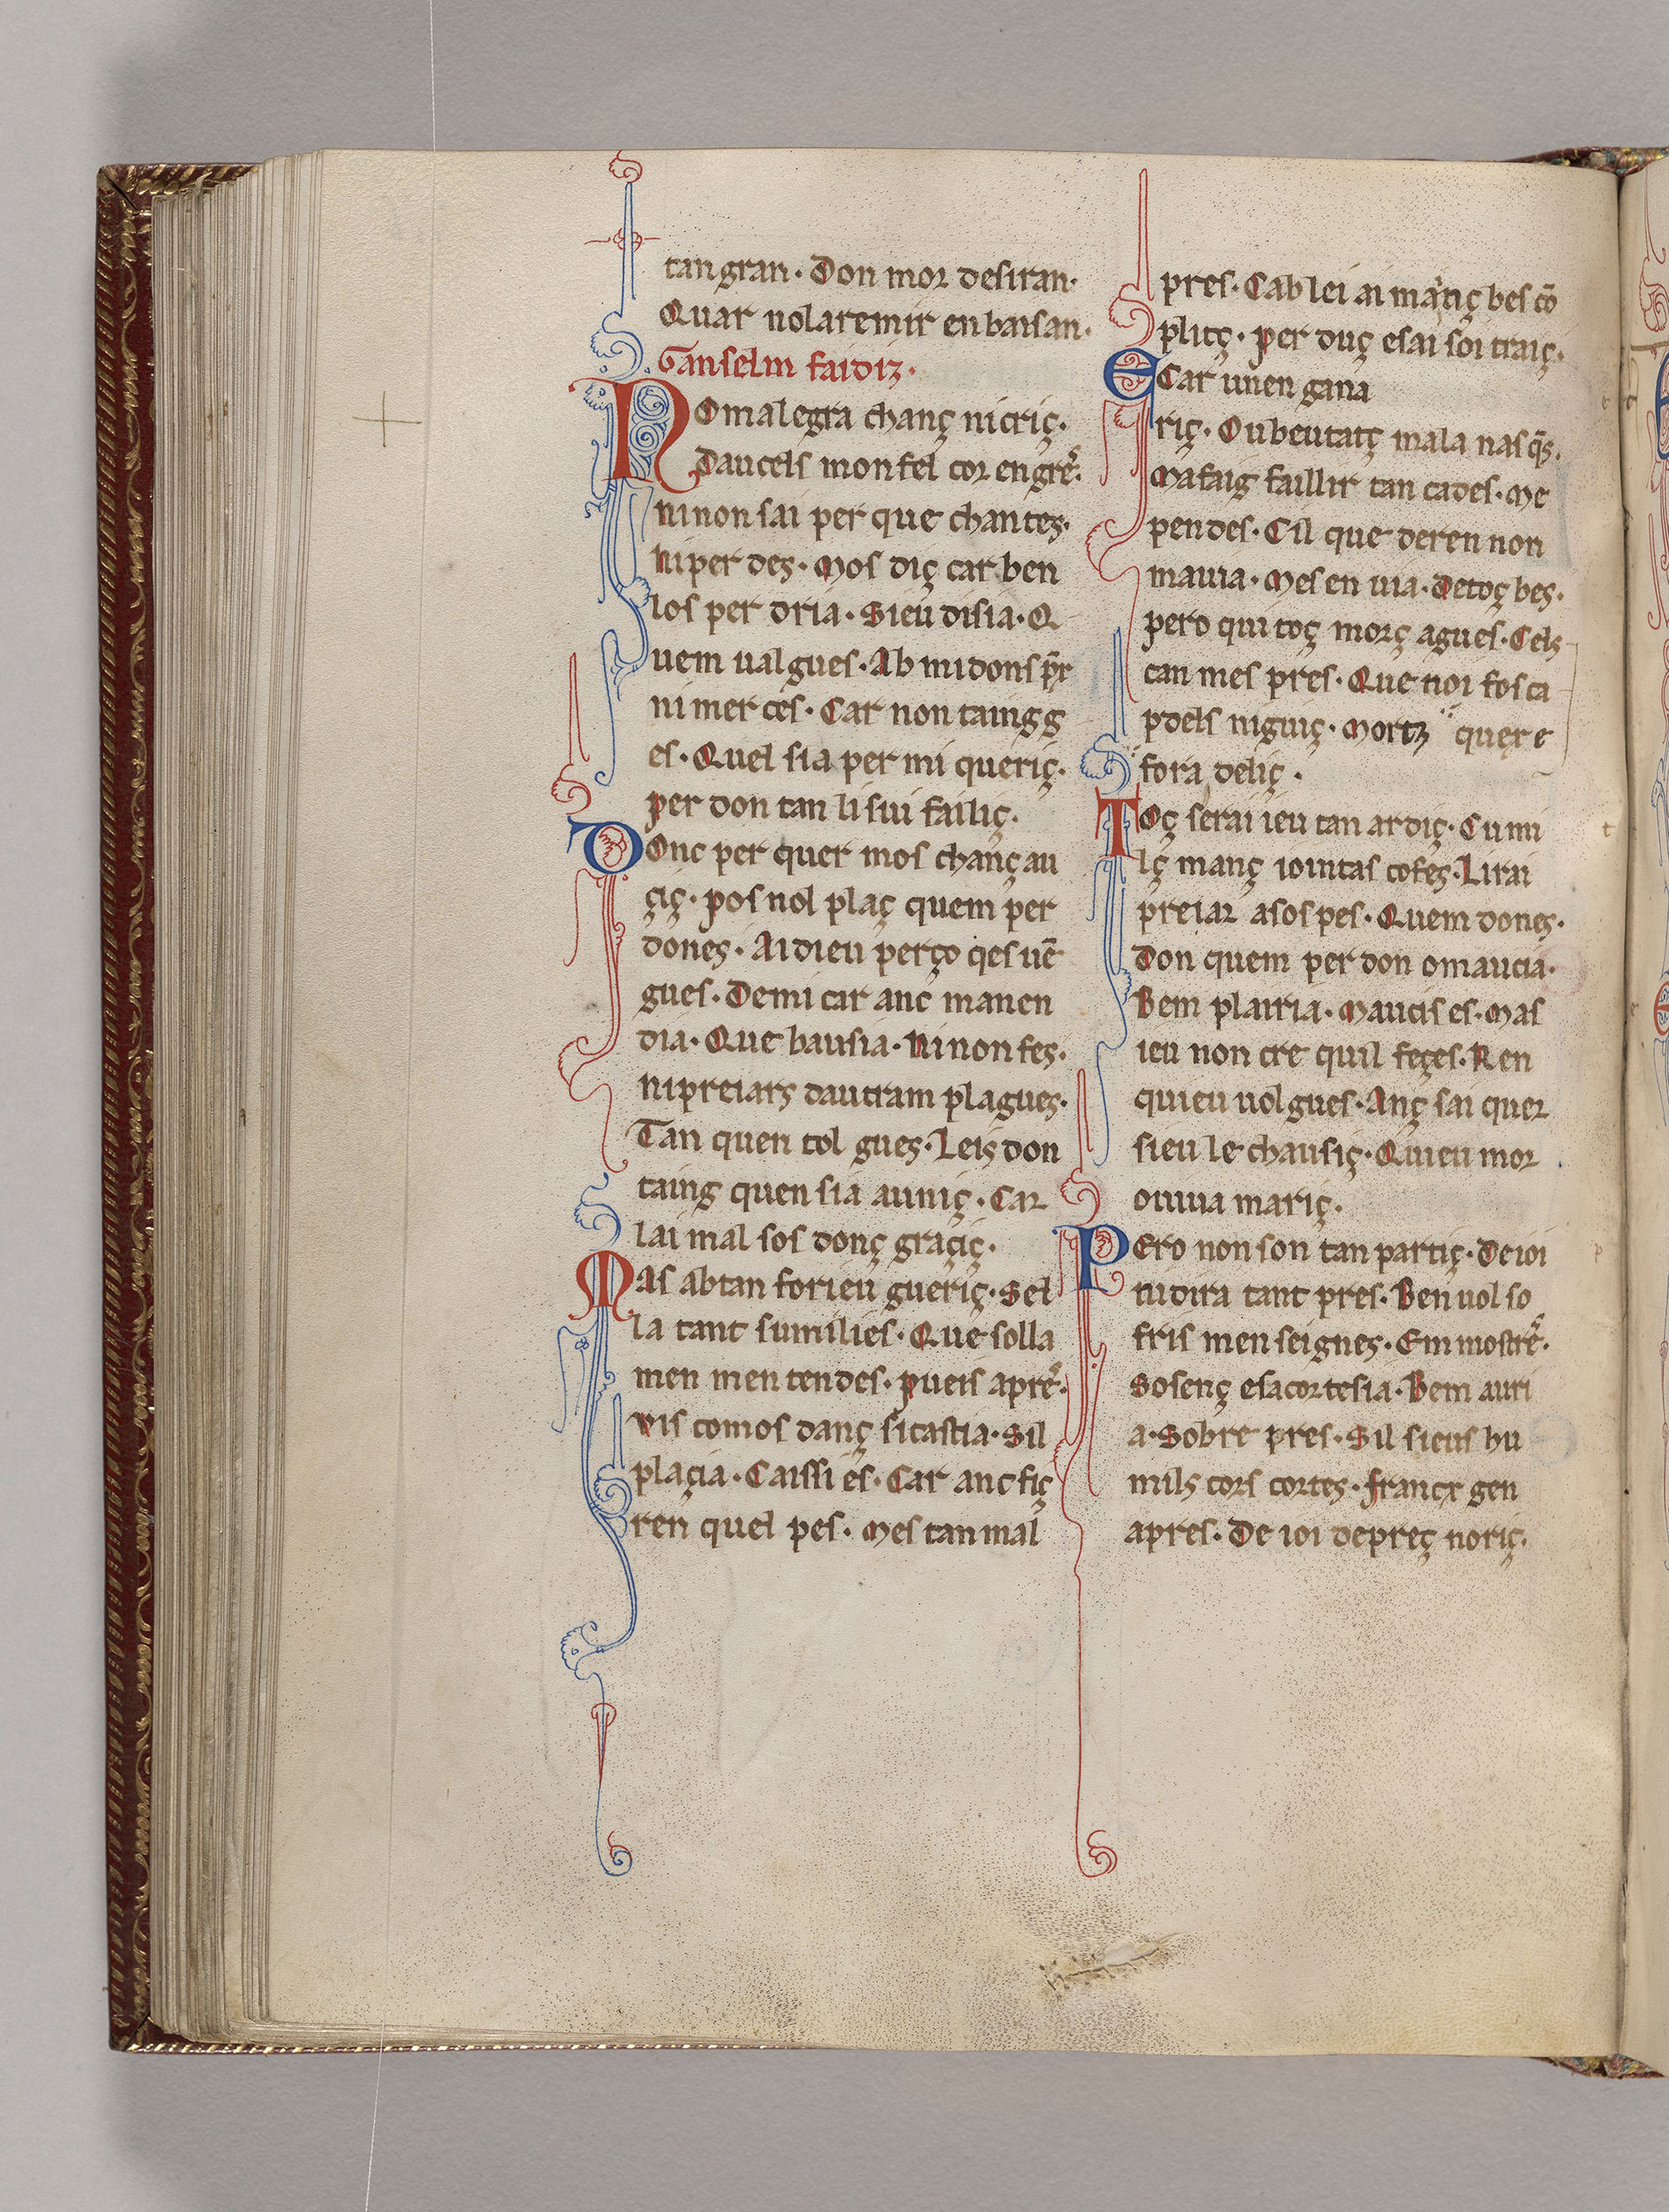 tan gran. Don mor desiran.
Quar nolaremir enbaisan.
Ganselm faidiz.
NOmalegra chanç nicriç.
Daucels mon fel cor en grẽ.
ni non sai per que chantes.
Ni per des. Mos diç car ben
los per dria. Sieu disia. Q
uem ualgues. Ab midons p̃r
ni mer ces. Car non taing g
es. Quel sia per mi queriç.
per don tan li sui failiç.
DOnc per quer mos chanç au
çiç. pos nol plaç quem per
dones. Ai dieu perço qes uẽ
gues. Demi car anc manen
dia. Que bausia. Ni non fes.
ni preiars dautram plagues.
Tan quen tol gues. Leis don
taing quen sia auniç. Car
lai mal sos donç graçiç.
Mas abtan forieu gueriç. Sel
la tant sumilies. Que solla
men men tendes. pueis aprẽ.
vis comos danç si castia. Sil
plaçia. Caissi es. Car anc fiç
ren quel pes. Mes tan mal
pres. Cab lei ai manç bes cõ
plitç. per duç esai soi traiç.
ECar unen gana
riç. Oubeutatç mala nasq̃s.
Mafaig faillir tan cades. Me
pendes. Cil que deren non
mauia. Mes en uia. Detoç bes.
pero qui toç morç agues. Cels
can mes pres. Que noi fos ca
pdels niguiç. Mortz quęr e
fora deliç.
TOç serai ieu tan ardiç. Cumi
lç manç iointas cofes. Lirai
preiar asos pes. Quem dones.
Don quem per don omaucia.
Bem plairia. Maucis es. Mas
ieu non cre quil feçes. Ren
quieu uol gues. Anç sai quer
sieu le chausiç. Quieu mor
ouiua mariç.
PEro non son tan partiç. De ioi
ni dira tant pres. Ben uol so
fris men seignes. Em mostrẽ.
Sosenç esacortesia. Bem auri
a. Sobre pres. Sil sieus hu
mils cors cortes. francx gen
apres. De ioi depreç noriç.